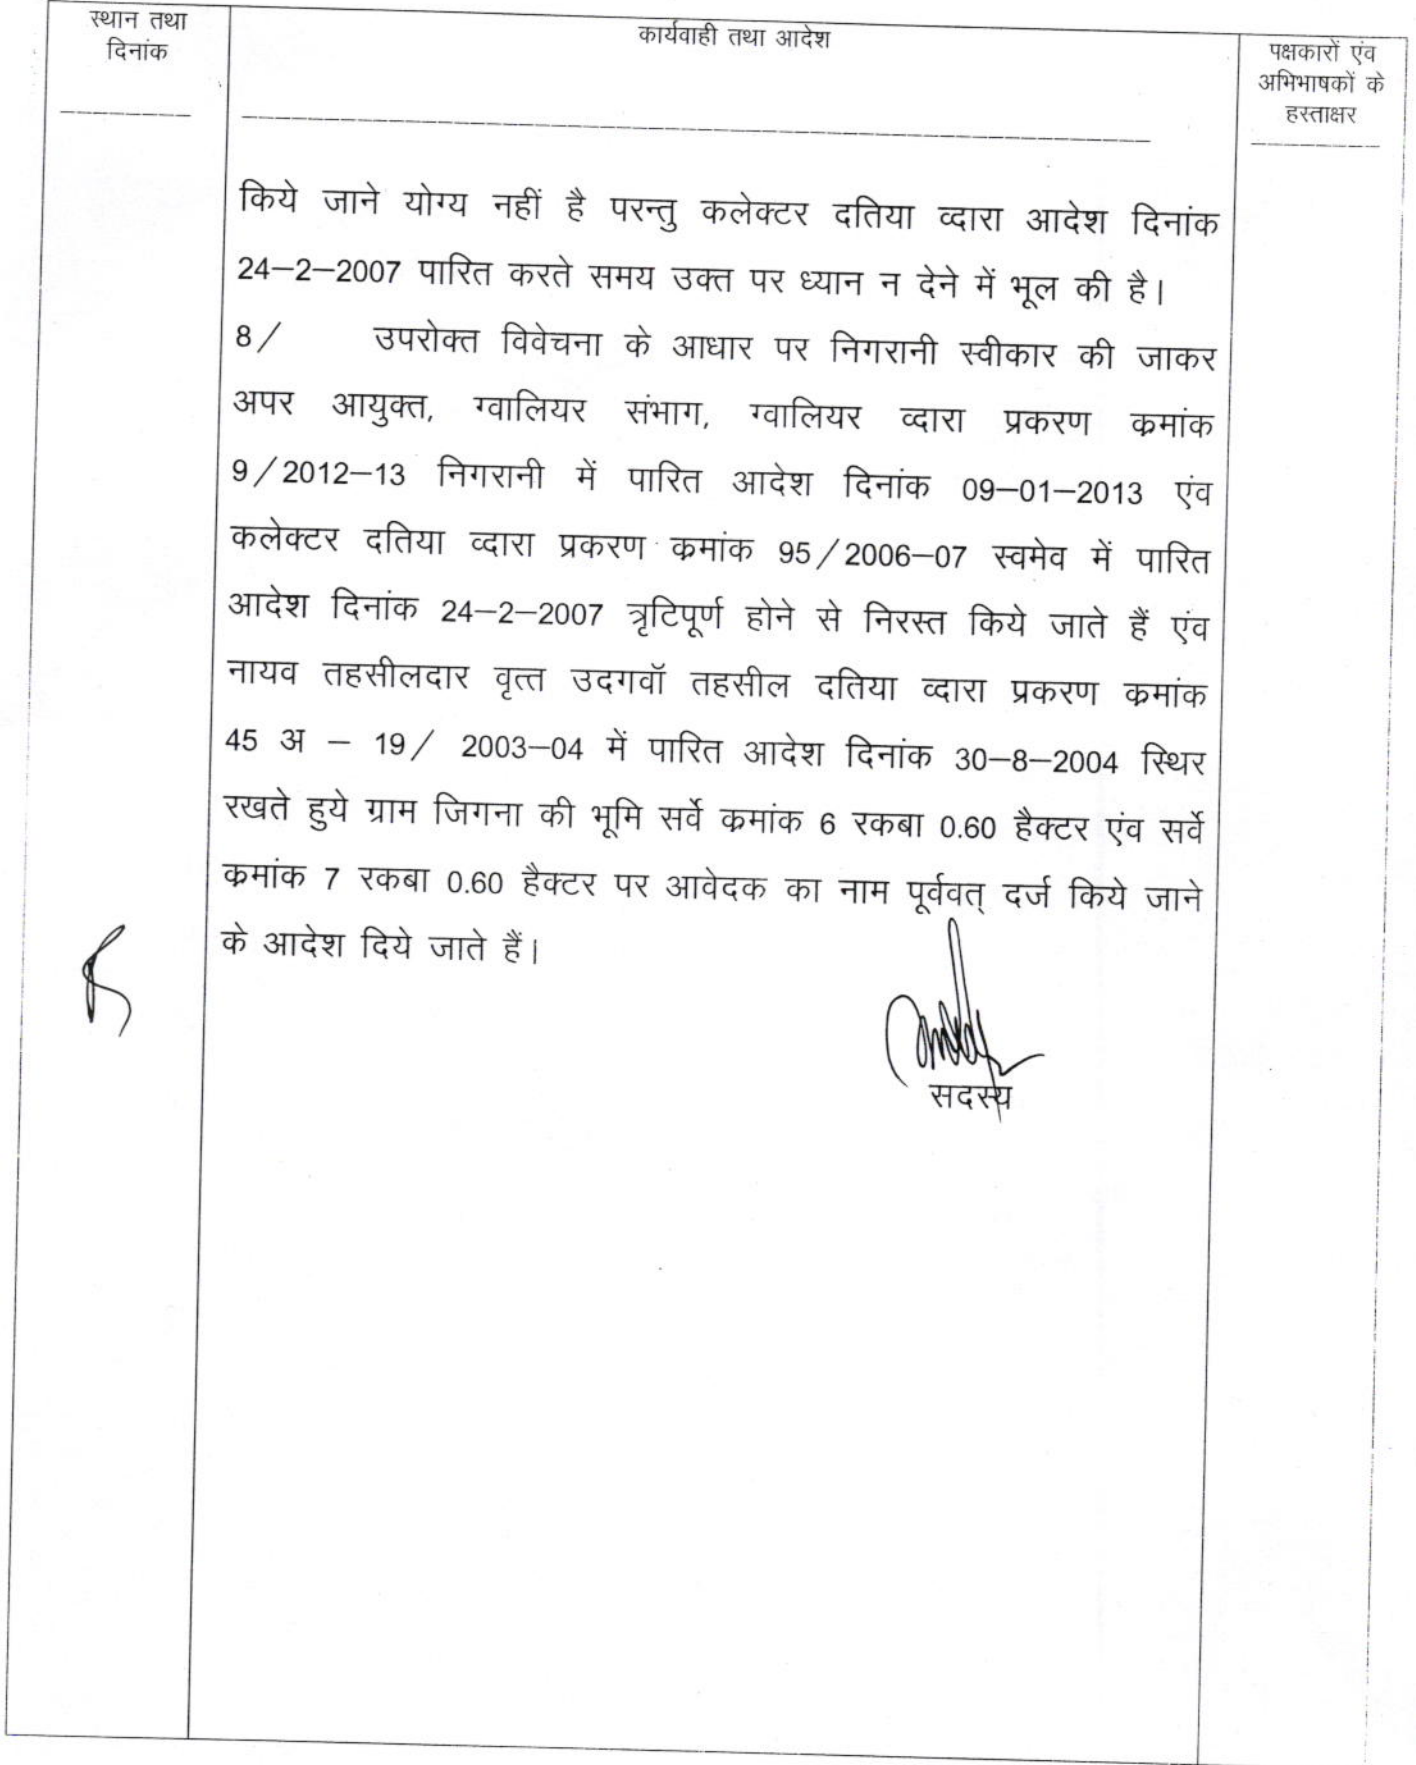 स्थान तथा
दिनांक
कार्यवाही तथा आदेश
पक्षकारों एंव
अभिभाषकों के
हस्ताक्षर
किये जाने योग्य नहीं है परन्तु कलेक्टर दतिया व्दारा आदेश दिनांक
24–2–2007 पारित करते समय उक्त पर ध्यान न देने में भूल की है।
8/ उपरोक्त विवेचना के आधार पर निगरानी स्वीकार की जाकर
अपर आयुक्त, ग्वालियर संभाग, ग्वालियर व्दारा प्रकरण क्रमांक
9/2012–13 निगरानी में पारित आदेश दिनांक 09–01–2013 एंव
कलेक्टर दतिया व्दारा प्रकरण क्रमांक 95/2006–07 स्वमेव में पारित
आदेश दिनांक 24–2–2007 त्रृटिपूर्ण होने से निरस्त किये जाते हैं एंव
नायव तहसीलदार वृत्त उदगवॉ तहसील दतिया व्दारा प्रकरण क्रमांक
45 अ – 19/ 2003–04 में पारित आदेश दिनांक 30–8–2004 स्थिर
रखते हुये ग्राम जिगना की भूमि सर्वे क्रमांक 6 रकबा 0.60 हैक्टर एंव सर्वे
क्रमांक 7 रकबा 0.60 हैक्टर पर आवेदक का नाम पूर्ववत् दर्ज किये जाने
के आदेश दिये जाते हैं।
सदस्य